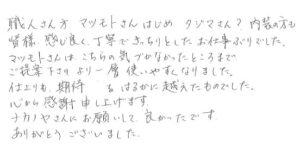 職人さん方 マツモトさんはじめ タジマさん? 内装の方も
皆様、感じ良く、丁寧できっちりとしたお仕事ぶりでした。
マツモトさんは こちらの気づかなかったところまで
ご提案下さり より一層 使いやすくなりました。
仕上りも、期待 を はるかに越えたものでした。
心から感謝申し上げます。
ナカノヤさんにお願いして、良かったです
ありがとうございました。